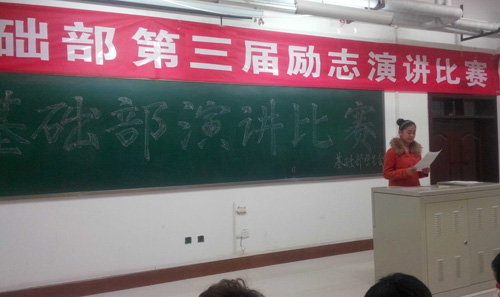 础部第三届励志演讲比赛
基础部演讲比赛